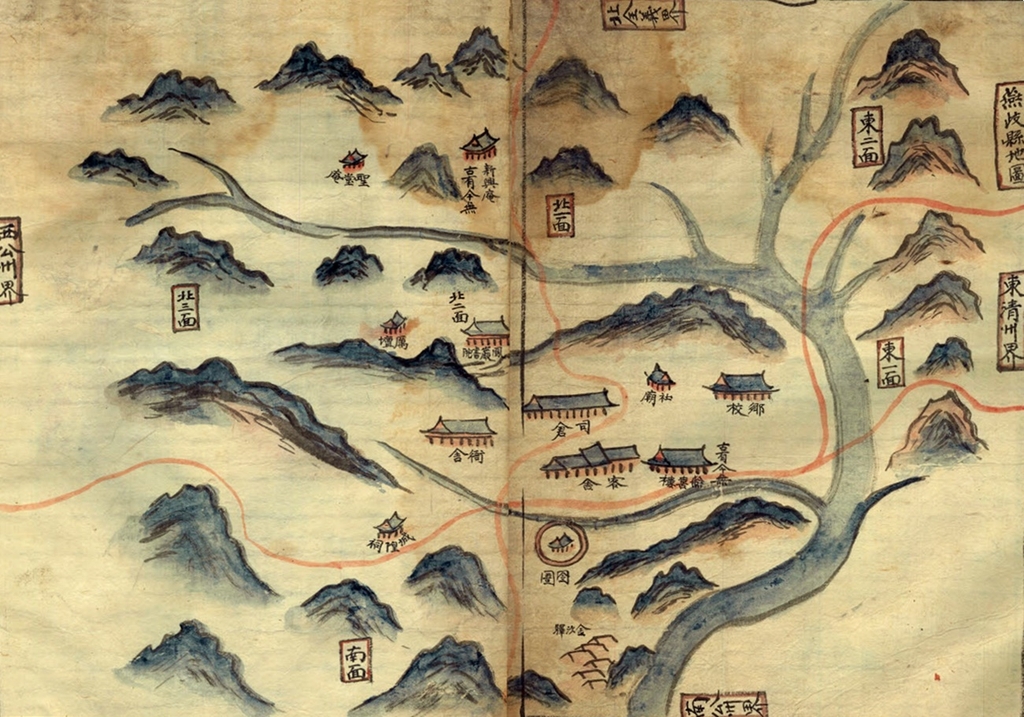 燕岐縣地圖
北全義界
東二面
東清州界
東一面
北一面
新興庵
古有今無
聖堂庵
北二面
北三面
西公州界
厲壇
社廟
鄉校
司倉
衙舍
客舍
古有今無
城隍祠
囹圄
金沙驛
南面
南公州界